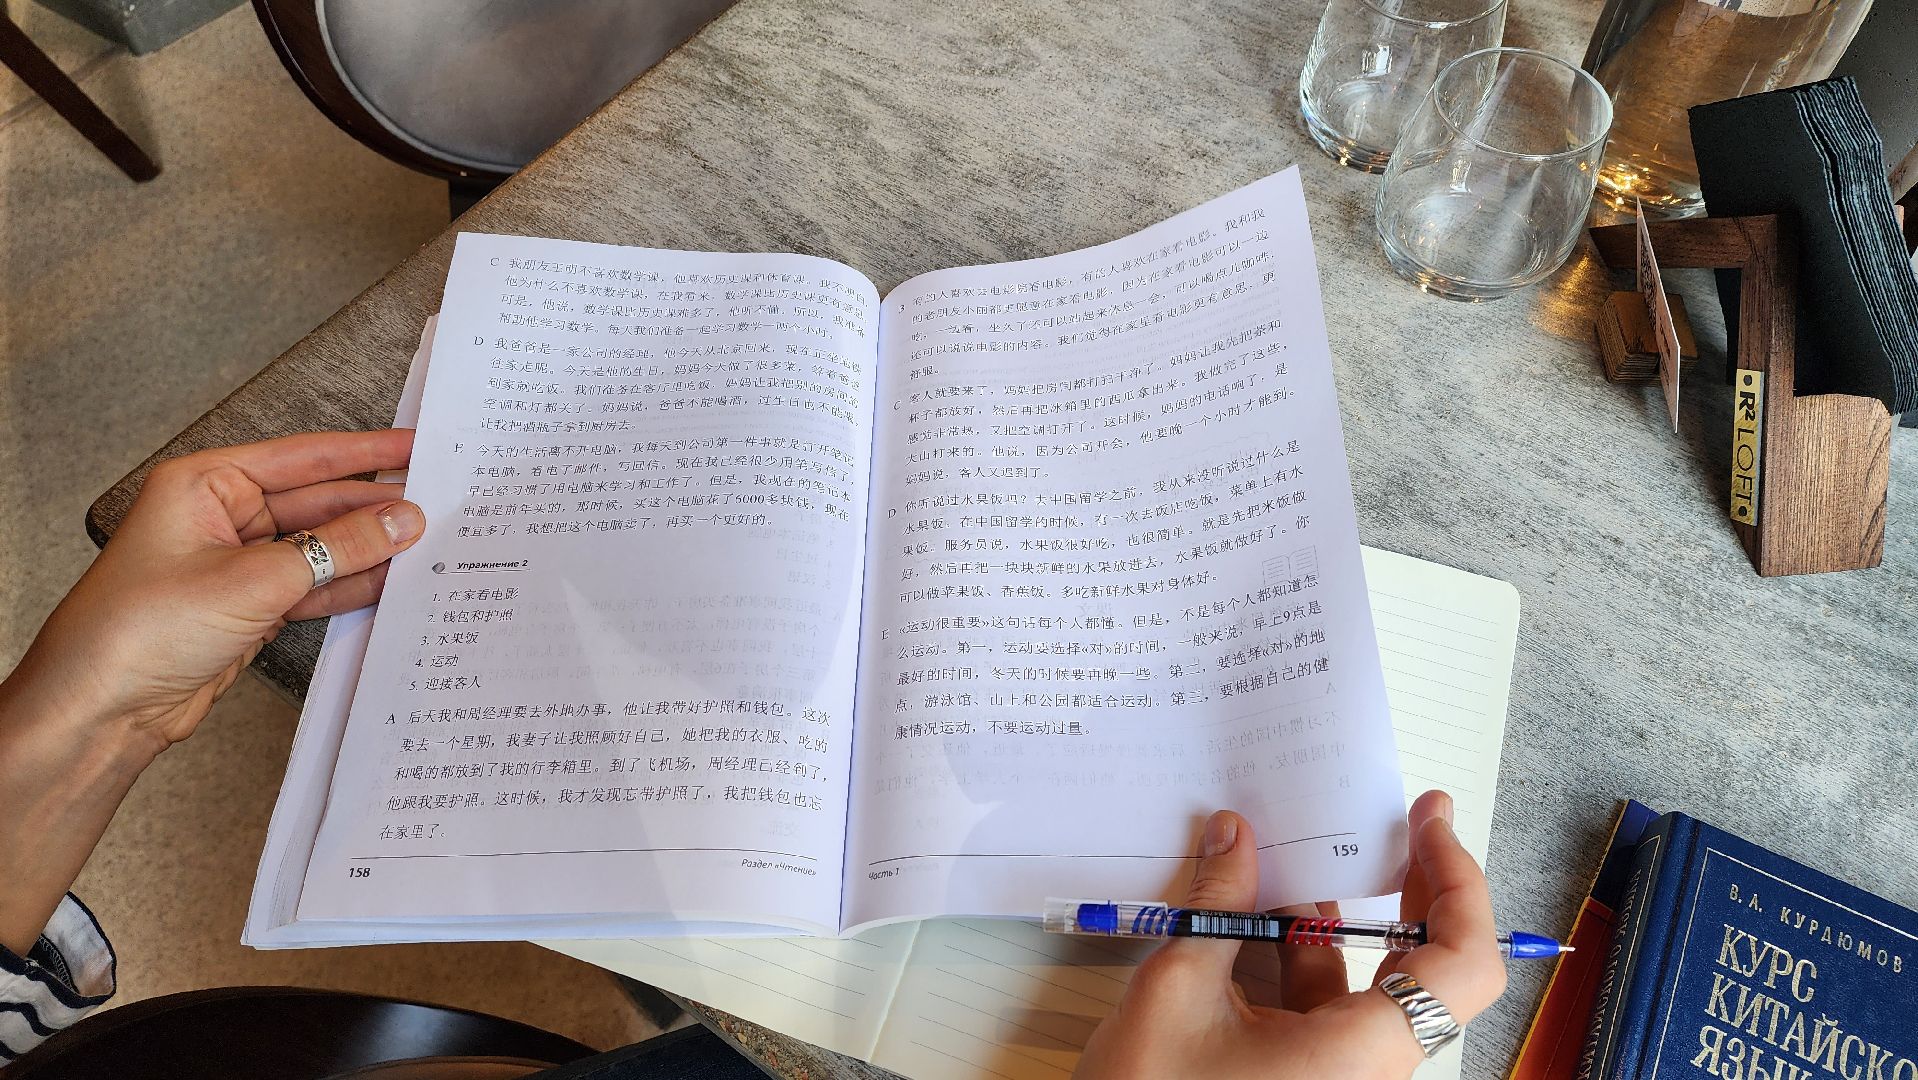 C 我朋友王明不喜欢数学课，他喜欢历史课和体育课。我不明白，
他为什么不喜欢数学课，在我看来，数学课比历史课更有意思。
可是，他说，数学课比历史课难多了，他听不懂。所以，我准备
帮助他学习数学。每天我们准备一起学习数学一两个小时。
D 我爸爸是一家公司的经理，他今天从北京回来，现在正坐地铁
往家走呢。今天是他的生日，妈妈今天做了很多菜，等着爸爸
到家就吃饭。我们准备在客厅里吃饭，妈妈让我把别的房间的
空调和灯都关了。妈妈说，爸爸不能喝酒，过生日也不能喝，
让我把酒瓶子拿到厨房去。
E 今天的生活离不开电脑，我每天到公司第一件事就是打开笔记
本电脑，看电子邮件，写回信。现在我已经很少用笔写信了，
早已经习惯了用电脑来学习和工作了。但是，我现在的笔记本
电脑是前年买的，那时候，买这个电脑花了6000多块钱，现在
便宜多了，我想把这个电脑卖了，再买一个更好的。
Упражнение 2
1. 在家看电影
2. 钱包和护照
3. 水果饭
4. 运动
5. 迎接客人
A 后天我和周经理要去外地办事，他让我带好护照和钱包。这次
要去一个星期，我妻子让我照顾好自己，她把我的衣服、吃的
和喝的都放到了我的行李箱里。到了飞机场，周经理已经到了，
他跟我要护照。这时候，我才发现忘带护照了，我把钱包也忘
在家里了。
158
Раздел «Чтение»
有的人喜欢去电影院看电影，有的人喜欢在家看电影。我和我
的老朋友小丽都更愿意在家看电影，因为在家看电影可以一边
吃，一边看，坐久了还可以站起来休息一会，可以喝点儿咖啡，
还可以说说电影的内容。我们觉得在家里看电影更有意思，更
舒服。
C 客人就要来了，妈妈把房间都打扫干净了。妈妈让我先把茶和
杯子都放好，然后再把冰箱里的西瓜拿出来。我做完了这些，
感觉非常热，又把空调打开了。这时候，妈妈的电话响了，是
大山打来的。他说，因为公司开会，他要晚一个小时才能到。
妈妈说，客人又迟到了。
D 你听说过水果饭吗？去中国留学之前，我从来没听说过什么是
水果饭。在中国留学的时候，有一次去饭店吃饭，菜单上有水
果饭。服务员说，水果饭很好吃，也很简单。就是先把米饭做
好，然后再把一块块新鲜的水果放进去，水果饭就做好了。你
可以做苹果饭、香蕉饭。多吃新鲜水果对身体好。
E «运动很重要»这句话每个人都懂。但是，不是每个人都知道怎
么运动。第一，运动要选择«对»的时间，一般来说，早上9点是
最好的时间，冬天的时候要再晚一些。第二，要选择«对»的地
点，游泳馆、山上和公园都适合运动。第三，要根据自己的健
康情况运动，不要运动过量。
Часть 1
159
R² LOFT
В. А. КУРДЮМОВ
КУРС
КИТАЙСКО
ЯЗЫК